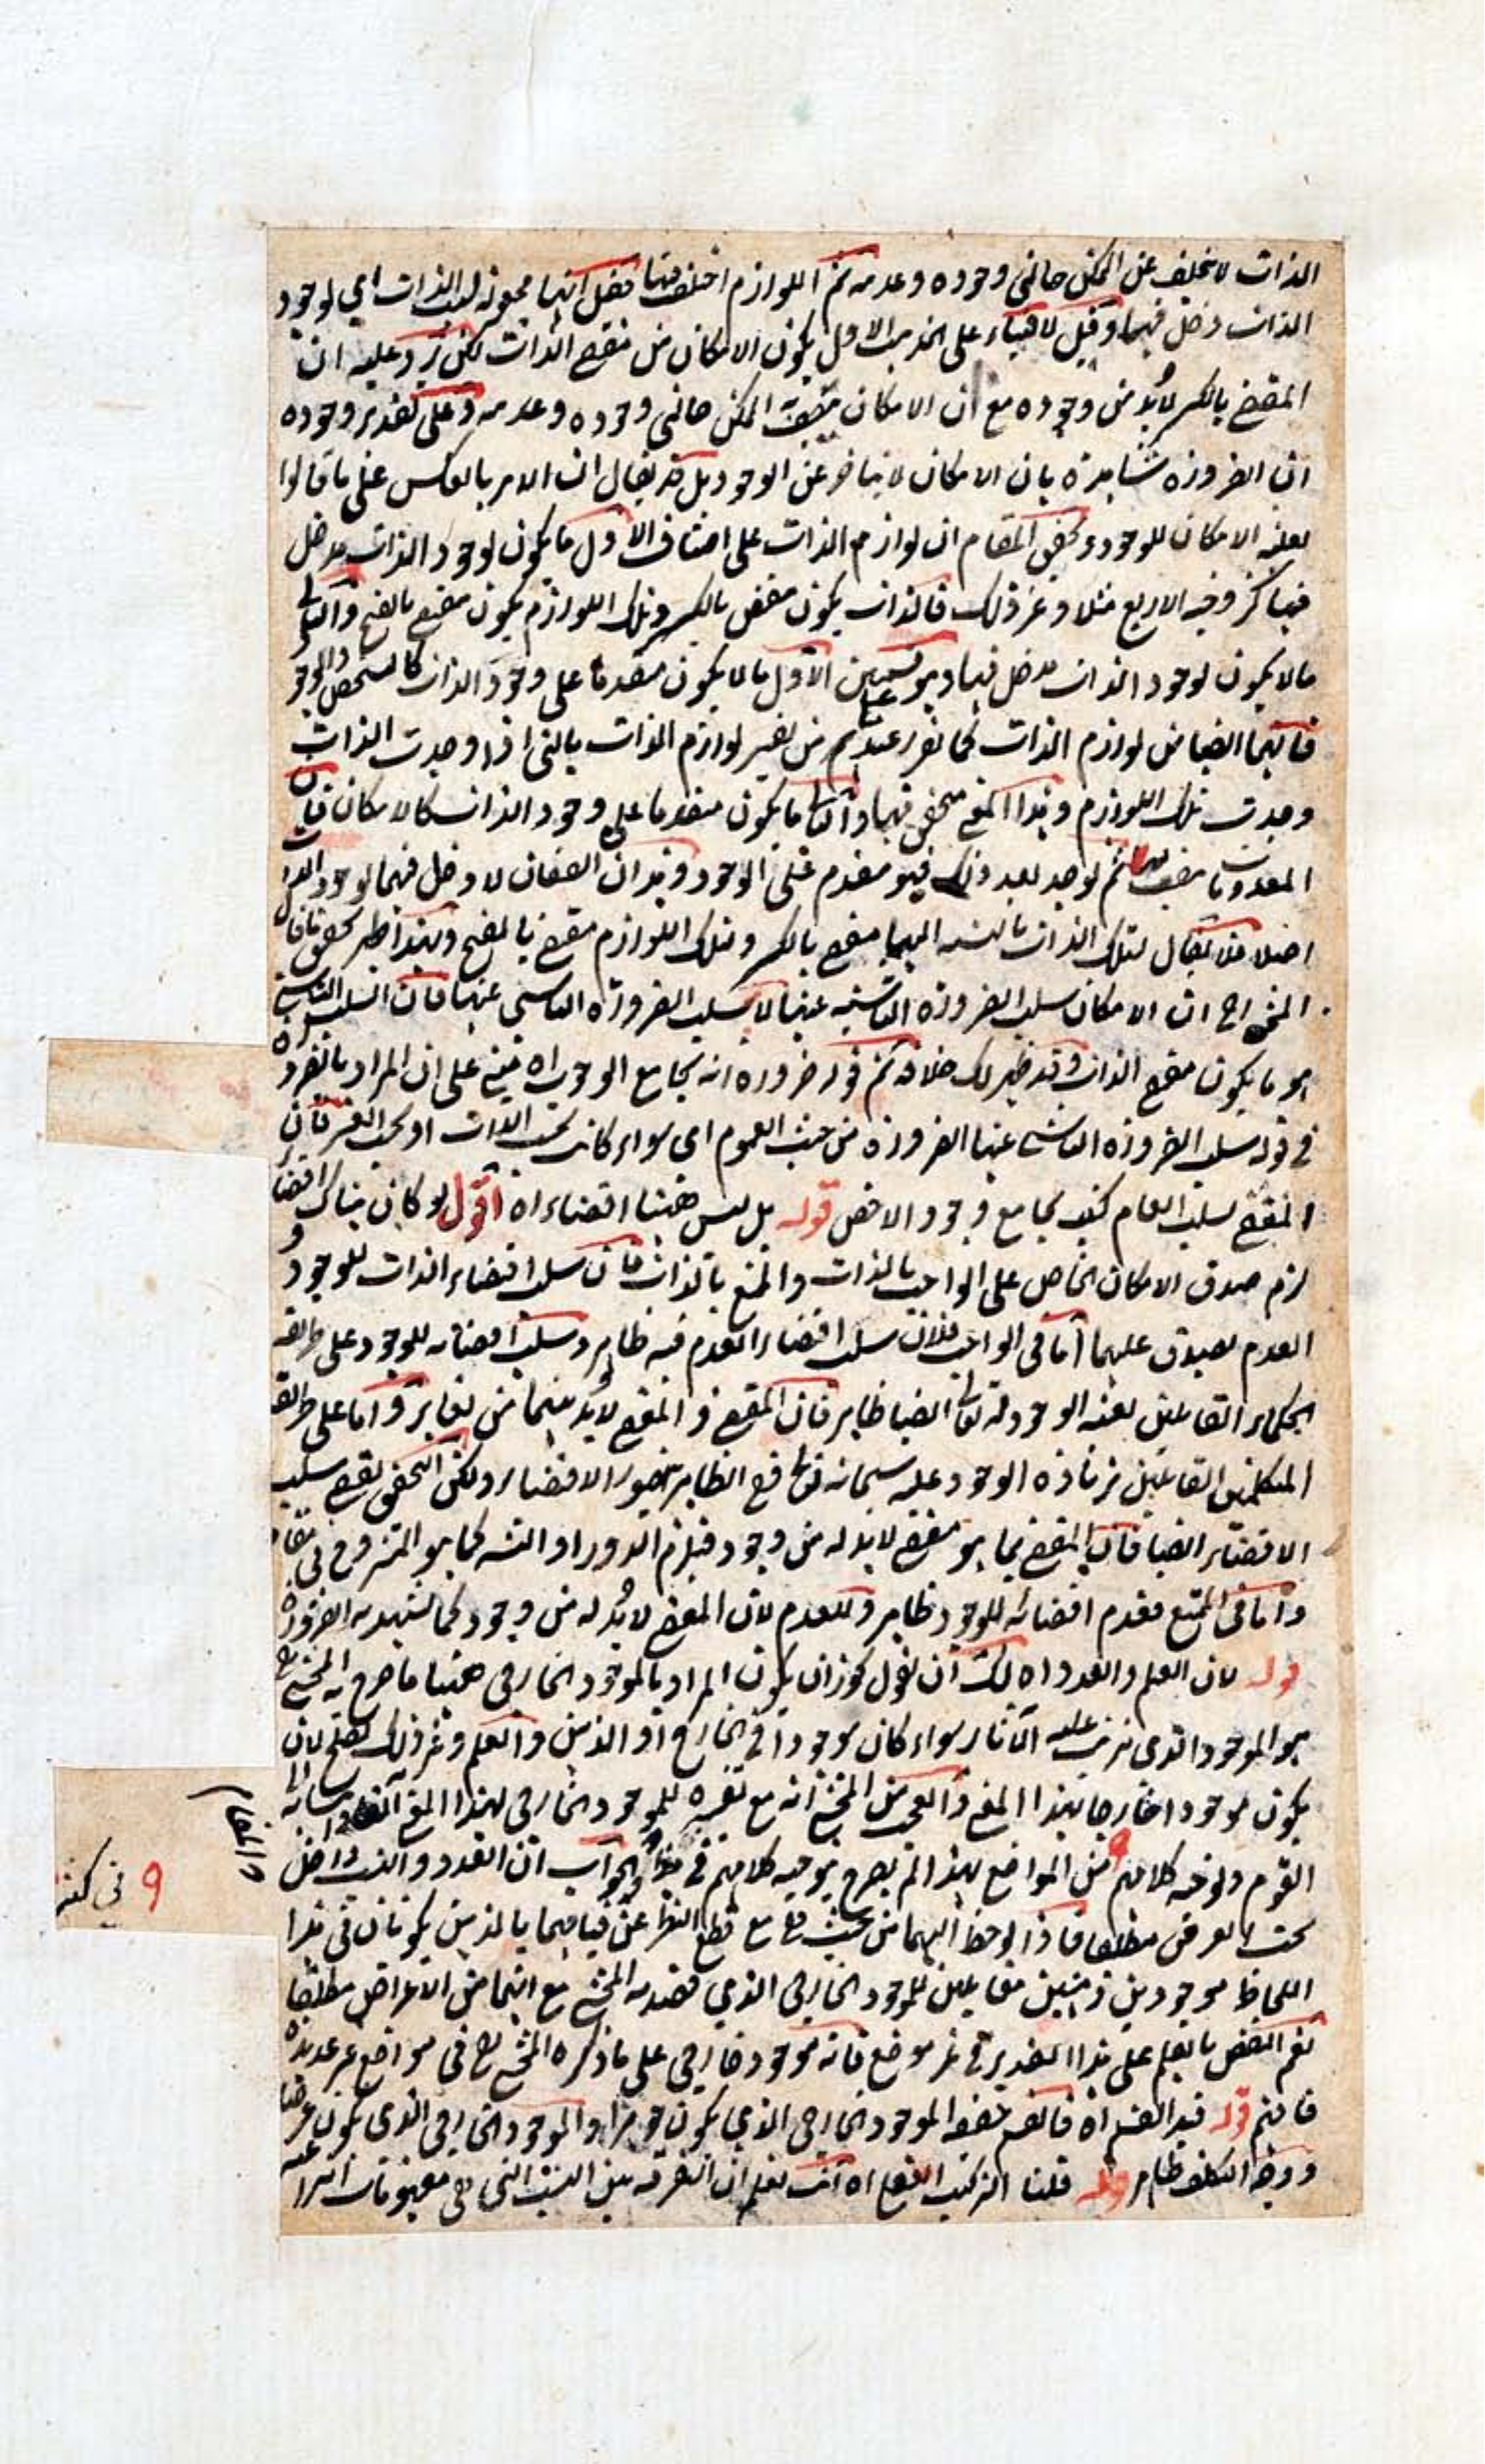 الذات لا تخلف عن الممكن حالتي وجوده وعدمه ثم اللوازم اختلف فيها فقيل انها مجعولة لتلك الذات اي لوجود
الذات دخل فيها وقيل لا فبناء على المذهب الاول يكون الامكان من مقتضى الذات لكن يرد عليه ان
المقتضي بالكسر لابد من وجوده مع ان الامكان يتصف الممكن حالتي وجوده وعدمه وعلى تقدير وجوده
ان الضرورة شاهدة بان الامكان لا يتأخر عن الوجود بل قد يقال ان الامر بالعكس على ما قالوا
بعلية الامكان للوجود وتحقيق المقام ان لوازم الذات على اصناف الاول ما يكون لوجود الذات مدخل
فيها كزوجية الاربع مثلا وغير ذلك فالذات يكون مقتضي بالكسر وتلك اللوازم يكون مقتضى بالفتح والثاني
ما لا يكون لوجود الذات مدخل فيها وهو على قسمين الاول ما لا يكون مقدما على وجود الذات كالتشخص والوجود
فانهما ايضا من لوازم الذات كما تقرر عندهم من تفسير لوازم الذات بالتي اذا وجدت الذات
وجدت تلك اللوازم وهذا المعنى متحقق فيها والثاني ما يكون متقدما على وجود الذات كالامكان فان
المعدومات متصف بها ثم توجد بعد ذلك فهو مقدم على الوجود وهذان الصنفان لا دخل فيهما لوجود الذات
اصلا فلا يقال لتلك الذات بالنسبة اليهما مقتضي بالكسر وتلك اللوازم مقتضى بالفتح وبهذا ظهر تحقق ما قال
المحشي رح ان الامكان سلب الضرورة الناشية عنها لا سلب الضرورة الناشي عنها فان السلب الناشي
هو ما يكون مقتضى الذات وقد ظهر لك خلافه ثم قوله ضرورة انه يجامع الوجوب اه مبني على ان المراد بالضرورة
في قوله سلب الضرورة الناشية عنها الضرورة من حيث العموم اي سواء كانت بحسب الذات او بحسب الغير فان
المقتضي لسلب العام كيف يجامع وجود الاخص قوله بل ليس ههنا اقتضاء اه اقول لو كان هناك اقتضاء
لزم صدق الامكان الخاص على الواجب بالذات والممتنع بالذات فان سلب اقتضاء الذات للوجود و
العدم يصدق عليهما اما في الواجب فلان سلب اقتضاء العدم فيه ظاهر وسلب اقتضائه للوجود على طريقة
الحكماء القائلين بعينية الوجود له تعالى ايضا ظاهر فان المقتضي والمقتضى لابد بينهما من تغاير واما على طريقة
المتكلمين القائلين بزيادة الوجود عليه سبحانه تعالى ففي الظاهر يتصور الاقتضاء ولكن التحقيق يقتضي سلب
الاقتضاء ايضا فان المقتضي بما هو مقتضي لابد له من وجود فيلزم الدور او التسـ كما هو المشروح في مقامه
واما في الممتنع فعدم اقتضائه للوجود ظاهر وللعدم لان المقتضي لابد له من وجود كما يشهد به الضرورة
قوله لان العلم والعدد اه لك ان تقول يجوز ان يكون المراد بالموجود الخارجي ههنا ما صرح به المحشي رح
هو الموجود الذي يترتب عليه الآثار سواء كان موجودا في الخارج او الذهن والعلم وغير ذلك يصلح لان
يكون موجودا خارجيا بهذا المعنى والعجب من المحشي انه مع تفسيره للموجود الخارجي بهذا المعنى
القوم وتوجيه كلامهم في كثير من المواضع بهذا لم يصرح بتوجيه كلامهم في هذا المقام والجواب ان العدد والنسب داخل
تحت العرض مطلقا فاذا لوحظ اليهما من حيث هي مع قطع النظر عن قيامهما بالذهن يكونان في هذا
اللحاظ موجودين ذهنيين مقابلين للموجود الخارجي الذي قصد به المحشي مع انهما من الاعراض مطلقا
نعم النقض بالعلم على هذا التقدير في غير موضع فانه موجود خارجي على ما ذكره المحشي رح في مواضع عديدة
فافهم قوله قيد القسم اه فالقسم حقيقة الموجود الخارجي الذي يكون جوهرا والموجود الخارجي الذي يكون عرضا
ووجه التكلف ظاهر قوله قلنا التركيب العقلي اه انت تعلم ان التفرقة بين النسب التي هي مفهومات انتزاعية
المقام
في كثير